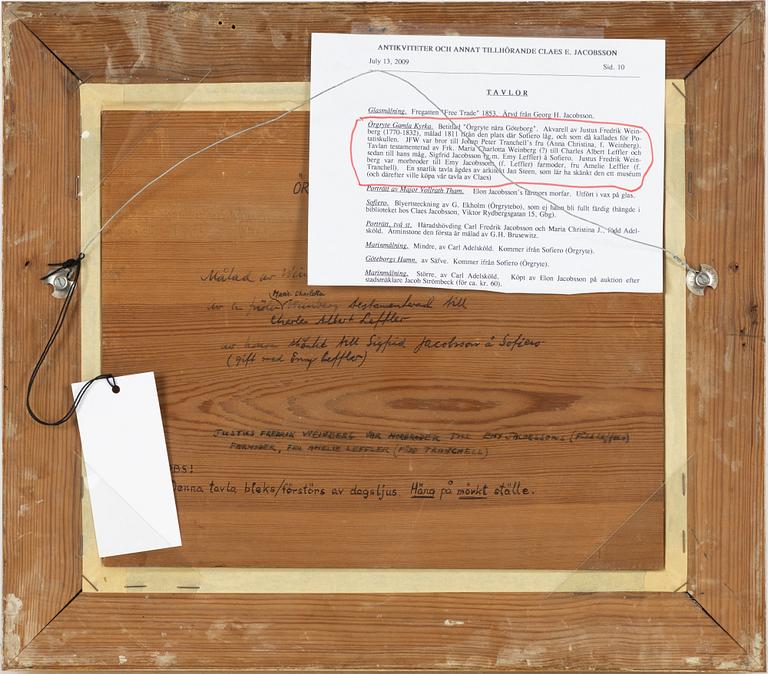 ANTIKVITETER OCH ANNAT TILLHÖRANDE CLAES E. JACOBSSON
July 13, 2009 Sid. 10
TAVLOR
Glasmålning. Fregatten "Free Trade" 1853. Ärvd från Georg H. Jacobsson.
Örgryte Gamla Kyrka. Betitlad "Örgryte nära Göteborg". Akvarell av Justus Fredrik Wein-
berg (1770-1832), målad 1811 ifrån den plats där Sofiero låg, och som då kallades för Po-
tatiskullen. JFW var bror till Johan Peter Tranchell's fru (Anna Christina, f. Weinberg).
Tavlan testamenterad av Frk. Maria Charlotta Weinberg (?) till Charles Albert Leffler och
sedan till hans måg, Sigfrid Jacobsson (g.m. Emy Leffler) å Sofiero. Justus Fredrik Wein-
berg var morbroder till Emy Jacobssons (f. Leffler) farmoder, fru Amelie Leffler (f.
Tranchell). En snarlik tavla ägdes av arkitekt Jan Steen, som lär ha skänkt den ett museum
(och därefter ville köpa vår tavla av Claes)
Porträtt av Major Vollrath Tham. Elon Jacobsson's farmors morfar. Utfört i vax på glas.
Sofiero. Blyertsteckning av G. Ekholm (Örgrytebo), som ej hann bli fullt färdig (hängde i
biblioteket hos Claes Jacobsson, Viktor Rydbergsgatan 15, Gbg).
Porträtt, två st. Häradshövding Carl Fredrik Jacobsson och Maria Christina J., född Adel-
sköld. Åtminstone den första är målad av G.H. Brusewitz.
Marinmålning. Mindre, av Carl Adelsköld. Kommer ifrån Sofiero (Örgryte).
Göteborgs Hamn, av Säfve. Kommer ifrån Sofiero (Örgryte).
Marinmålning. Större, av Carl Adelsköld. Köpt av Elon Jacobsson på auktion efter
stadsmäklare Jacob Strömbeck (för ca. kr. 60).
ÖR
Målad av Wein
Maria Charlotta
av fröken Weinberg testamenterad till
Charles Albert Leffler
av honom skänkt till Sigfrid Jacobsson å Sofiero
(gift med Emy Leffler)
JUSTUS FREDRIK WEINBERG VAR MORBRODER TILL EMY JACOBSSONS (FÖDD LEFFLER)
FARMODER, FRU AMELIE LEFFLER (FÖDD TRANCHELL)
OBS!
Denna tavla bleks/förstörs av dagsljus. Häng på mörkt ställe.